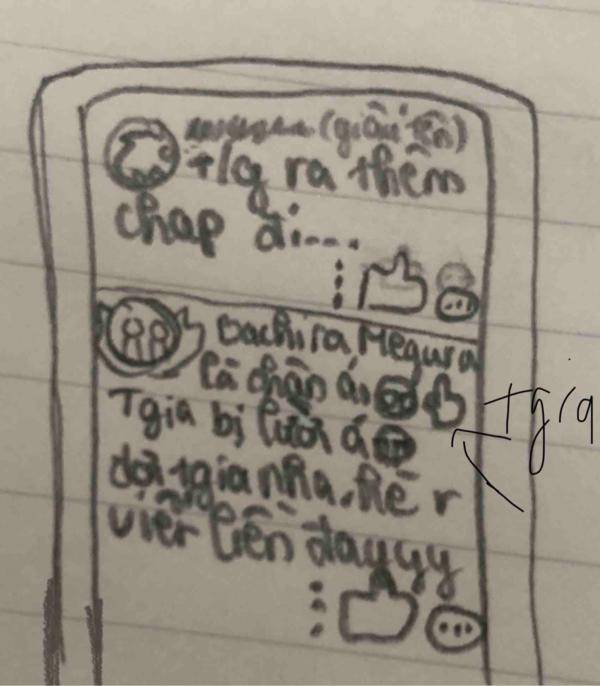 (giấu tên)
+1g ra thêm
chap đi....
bachira, Megura
là chân ái
Tgia bị lười á
đợi tgia nha, hè r
viết liền đayyy
tg/a